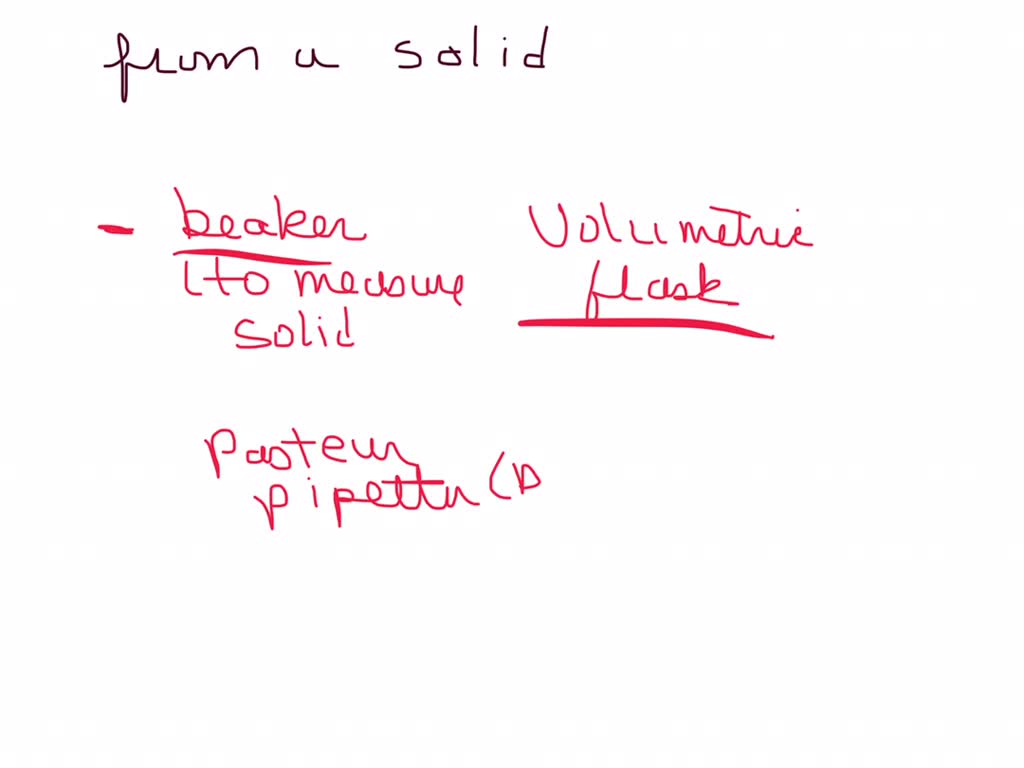 from a solid
- beaker
(to measure
solid
Volumetric
flask
Pasteur
pipettu (D